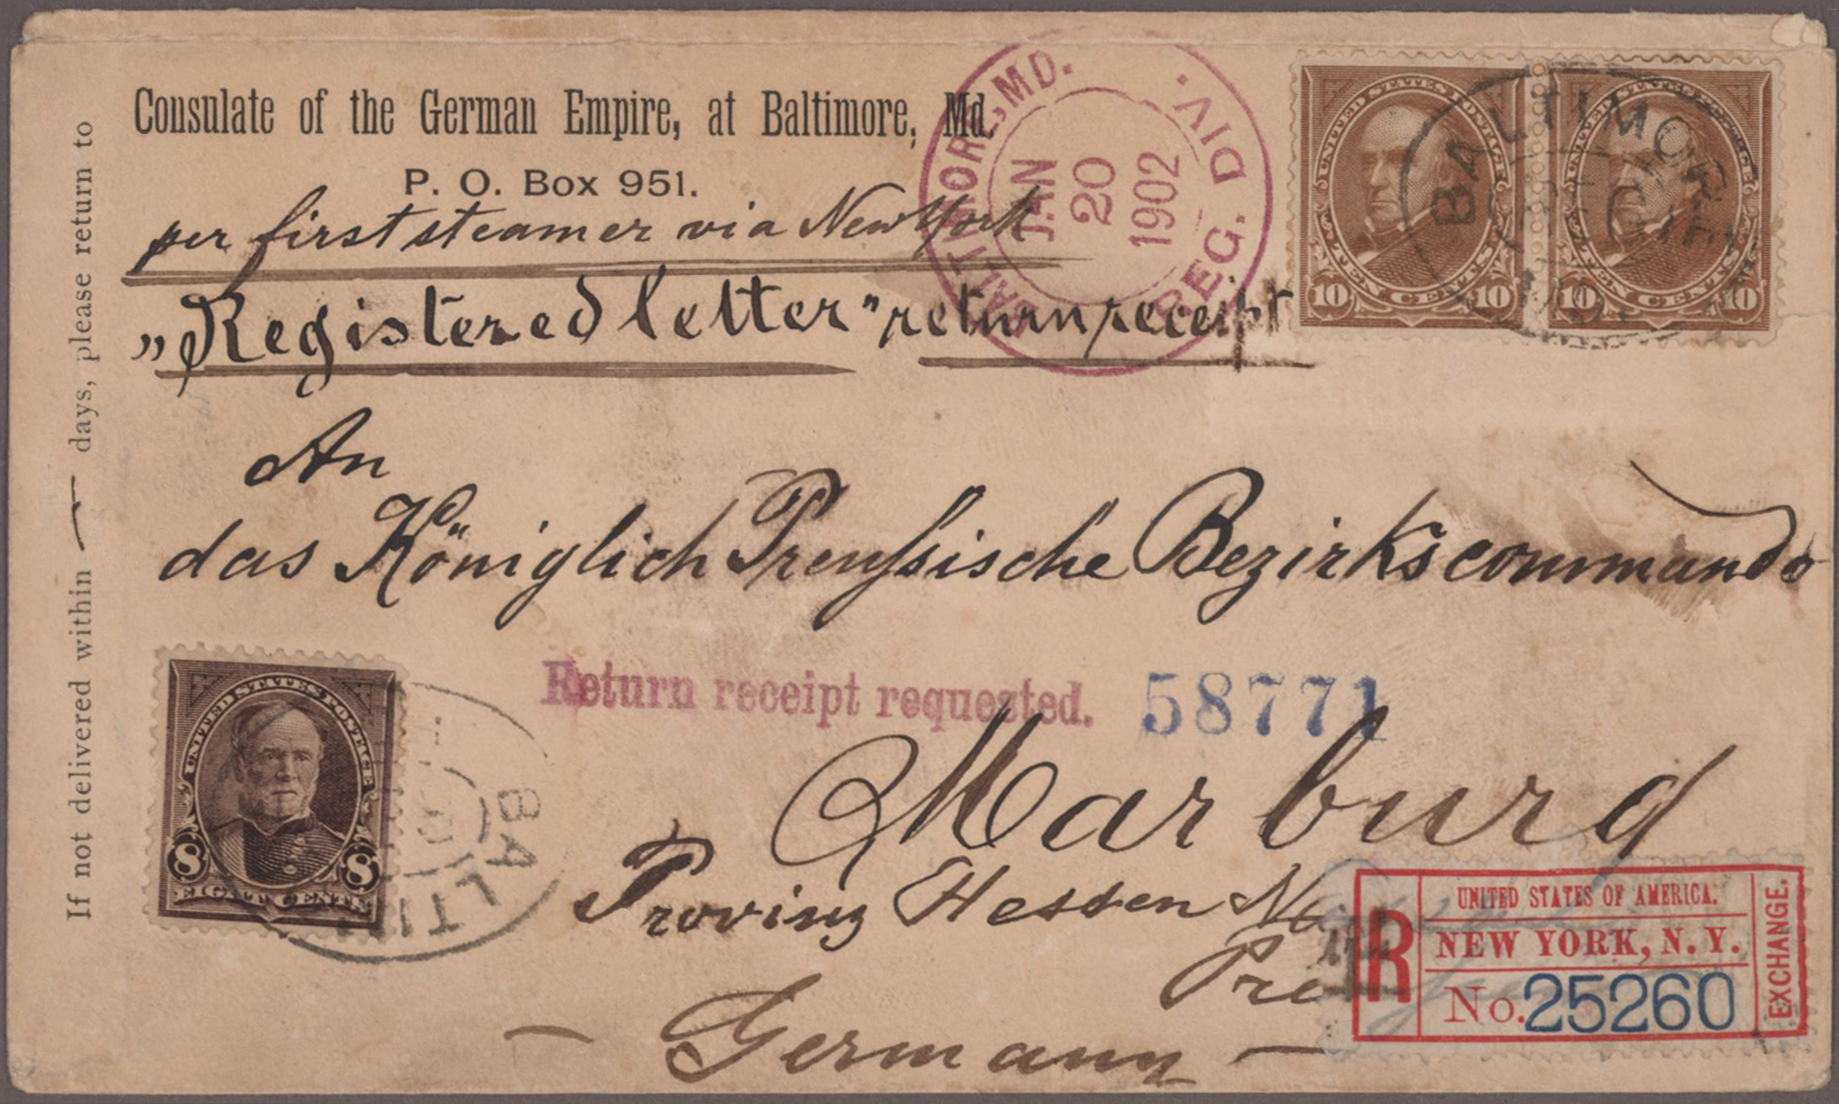 If not delivered within — days, please return to
Consulate of the German Empire, at Baltimore, Md
P. O. Box 951.
per first steamer via New York
„Registered letter" return receipt
BALTIMORE, MD. REG. DIV.
JAN
20
1902
UNITED STATES POSTAGE
10 TEN CENTS 10
UNITED STATES POSTAGE
10 TEN CENTS 10
BALTIMORE
An
das Königlich Preuſsische Bezirkscommando
Return receipt requested. 58771
UNITED STATES POSTAGE
8 8
EIGHT CENTS
BALTI
Marburg
Provinz Hessen
Germany
R
UNITED STATES OF AMERICA.
NEW YORK, N. Y.
No. 25260
EXCHANGE.